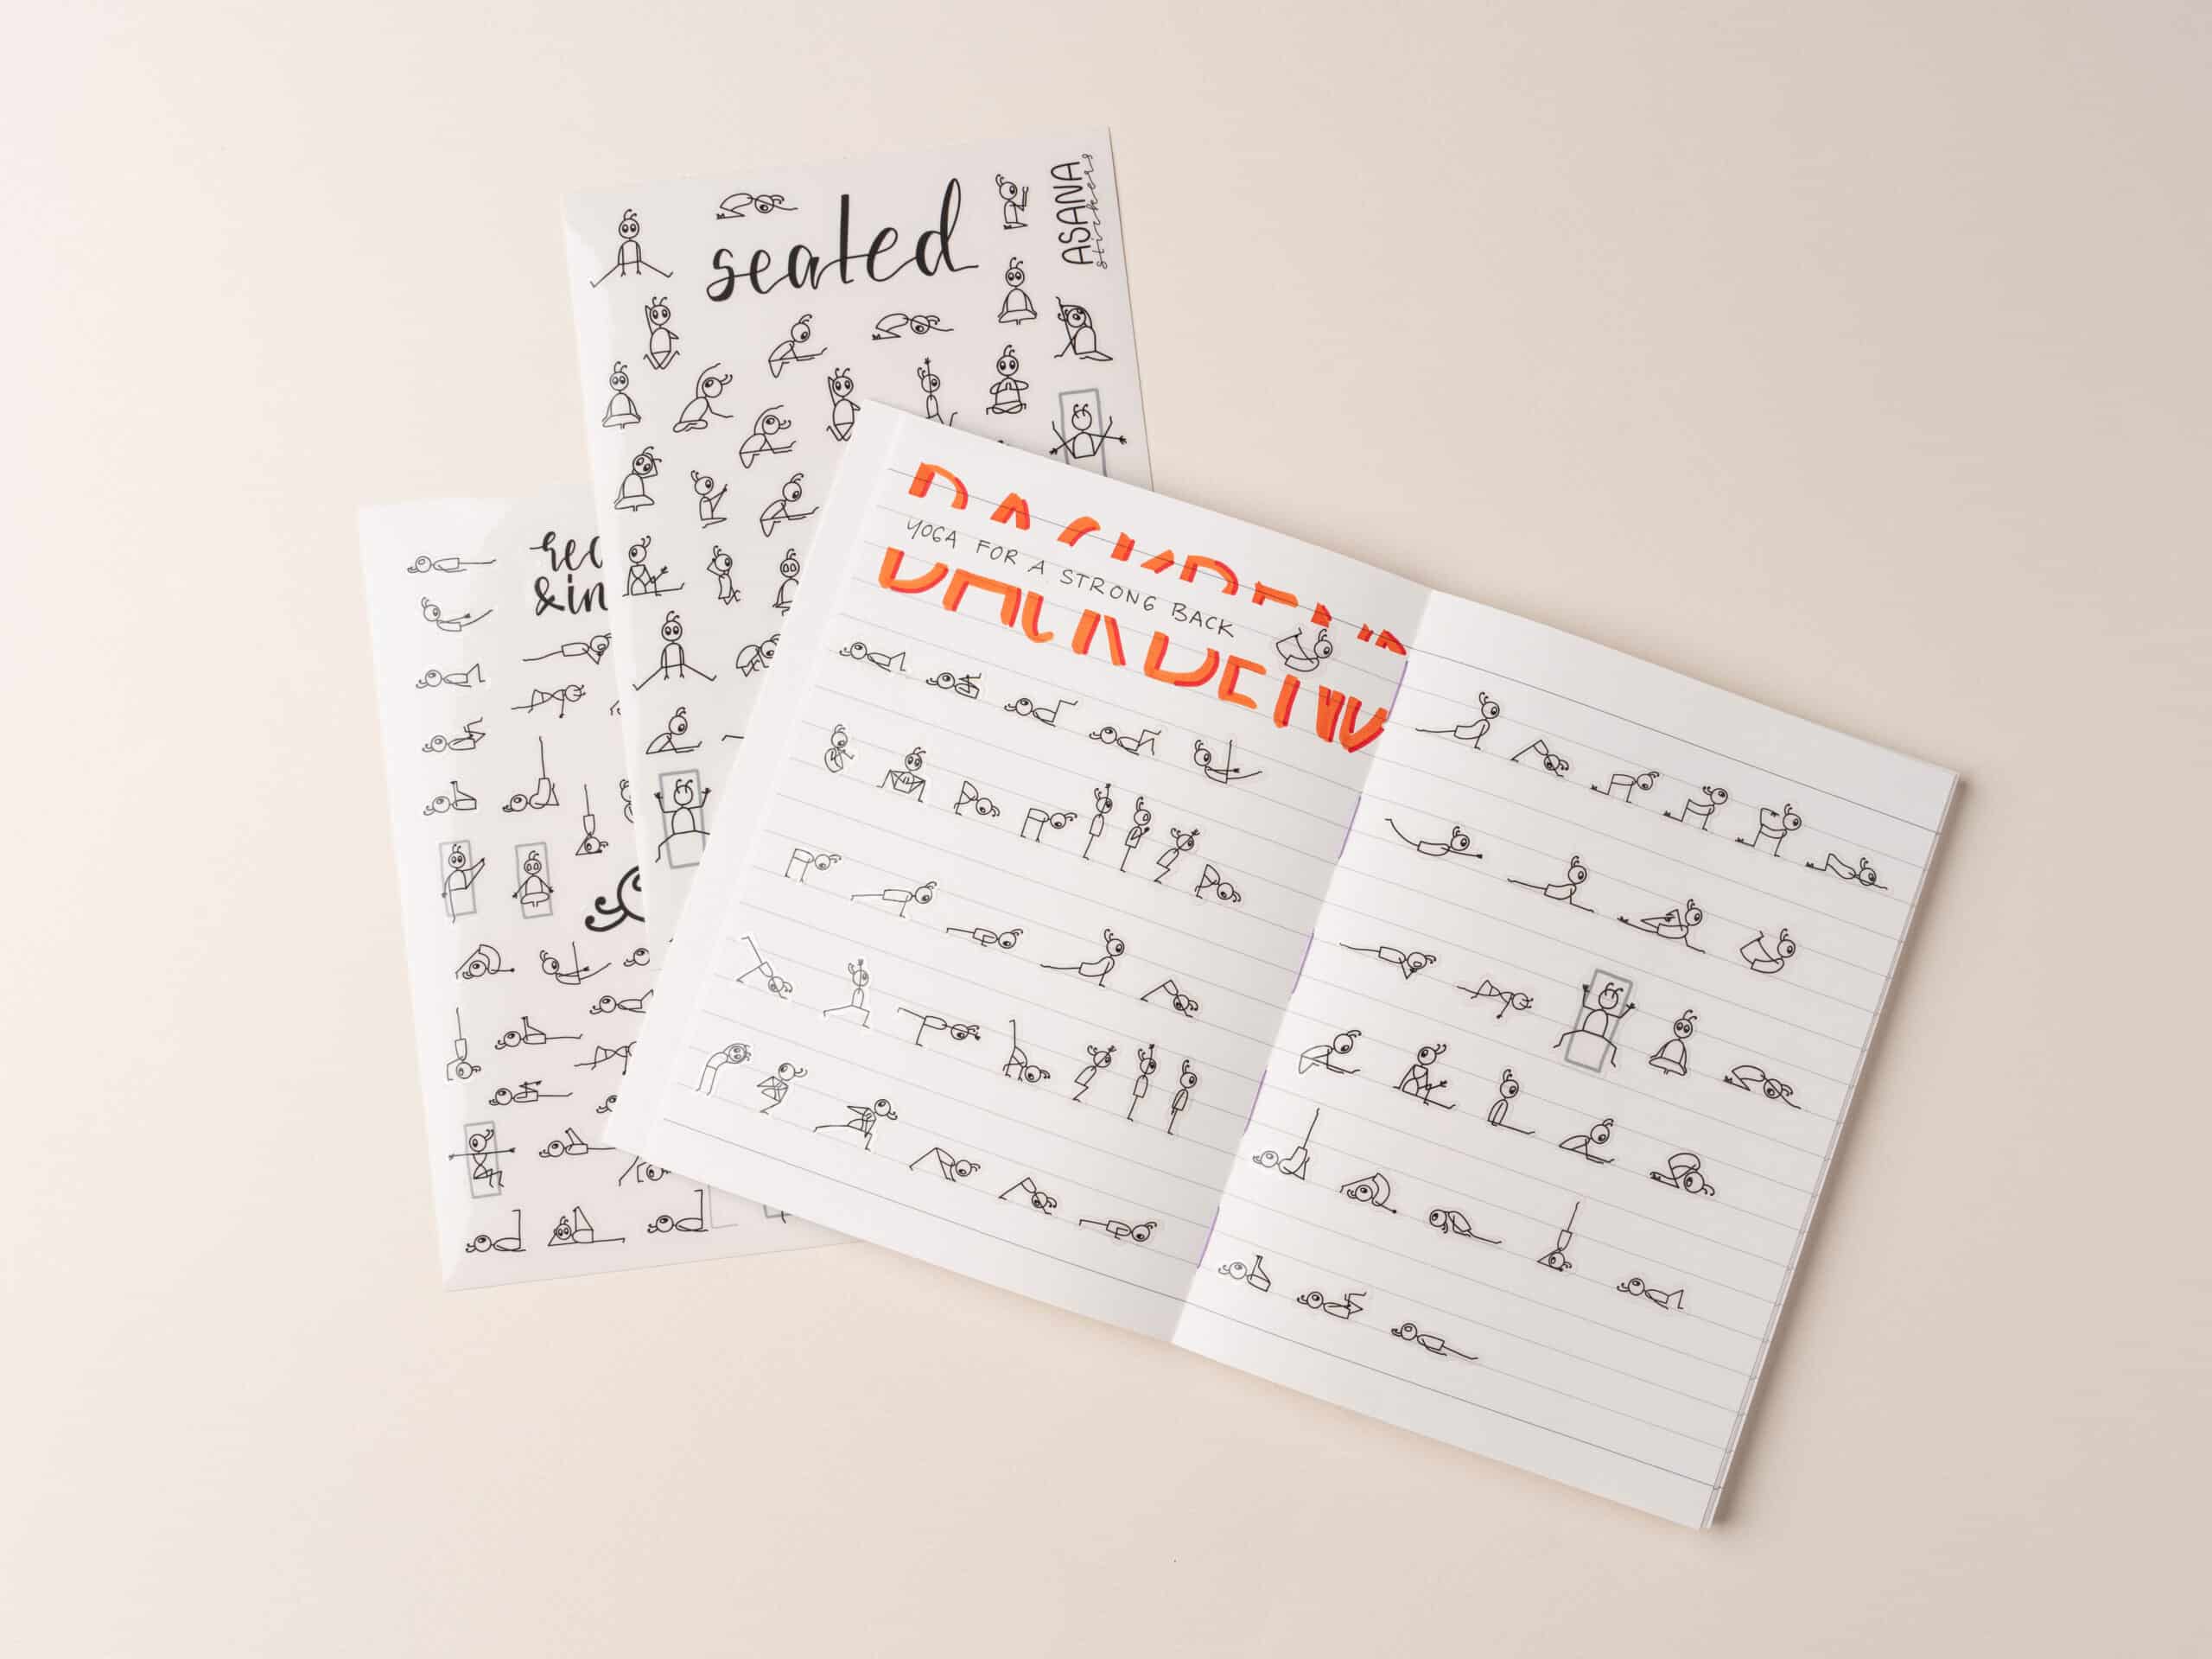 seated
ASANA
stickers
rec
&in
BACKBEND
YOGA FOR A STRONG BACK